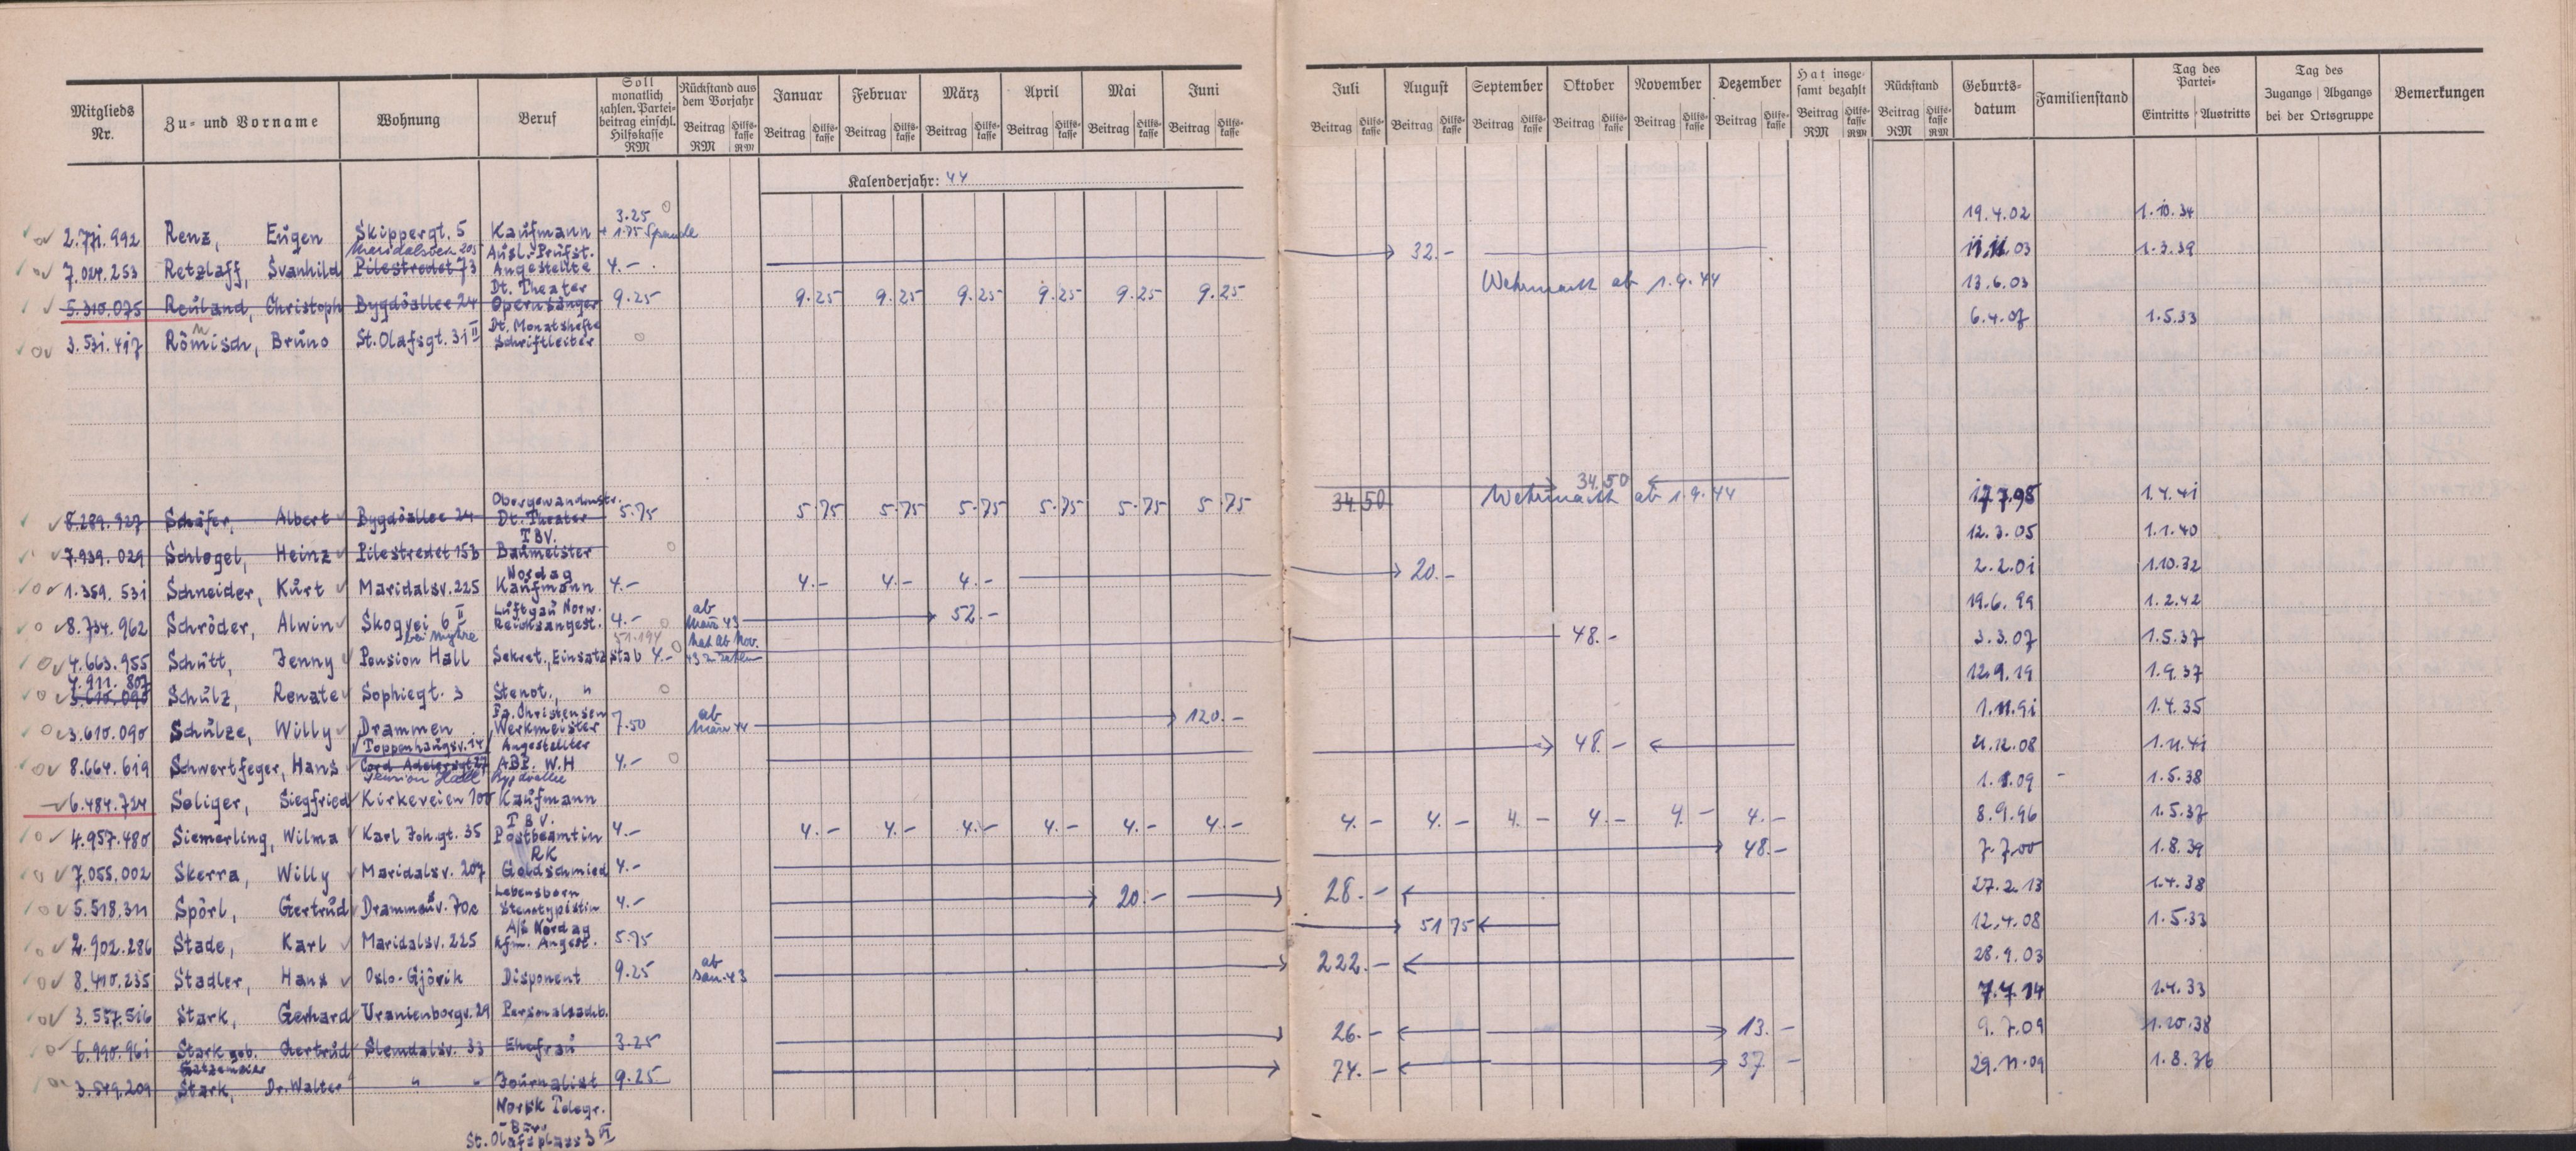 Mitglieds Nr. | Zu- und Vorname | Wohnung | Beruf | Soll monatlich zahlen. Partei-beitrag einschl. Hilfskasse RM | Rückstand aus dem Vorjahr Beitrag RM Hilfs-kasse RM | Januar Beitrag Hilfs-kasse | Februar Beitrag Hilfs-kasse | März Beitrag Hilfs-kasse | April Beitrag Hilfs-kasse | Mai Beitrag Hilfs-kasse | Juni Beitrag Hilfs-kasse | Juli Beitrag Hilfs-kasse | August Beitrag Hilfs-kasse | September Beitrag Hilfs-kasse | Oktober Beitrag Hilfs-kasse | November Beitrag Hilfs-kasse | Dezember Beitrag Hilfs-kasse | Hat insge-samt bezahlt Beitrag RM Hilfs-kasse RM | Rückstand Beitrag RM Hilfs-kasse RM | Geburts-datum | Familienstand | Tag des Partei- Eintritts Austritts | Tag des Zugangs Abgangs bei der Ortsgruppe | Bemerkungen
Kalenderjahr: 44
2.771.992 Renz, Eugen Skippergt. 5 Kaufmann 3.25 + 1.75 Spende 19.4.02 1.10.34
7.024.253 Retzlaff, Svanhild Maridalsvn 205 Pilestredet 73 Ausl. Prüfst. Angestellte 4.- 32.- 11.11.03 1.3.39
5.310.075 Reuland, Christoph Bygdöallee 24 Dt. Theater Opernsänger 9.25 9.25 9.25 9.25 9.25 9.25 9.25 Wehrmacht ab 1.9.44 13.6.03
3.531.417 Römisch, Bruno St. Olafsgt. 31 II Dt. Monatshefte Schriftleiter 6.4.07 1.5.33
8.289.927 Schäfer, Albert Bygdöallee 24 Obergewandmstr. Dt. Theater 5.75 5.75 5.75 5.75 5.75 5.75 5.75 34.50 34.50 Wehrmacht ab 1.9.44 17.7.98 1.4.41
7.939.029 Schlogel, Heinz Pilestredet 15b TBV. Baumeister 12.3.05 1.1.40
1.359.531 Schneider, Kurt Maridalsv. 225 Nordag Kaufmann 4.- 4.- 4.- 4.- 20.- 2.2.01 1.10.32
8.734.962 Schröder, Alwin Skogvei 6 II Luftgau Norw. Reichsangest. 4.- ab März 43 52.- 19.6.99 1.2.42
4.663.955 Schütt, Jenny bei Myhre Pension Hall Sekret., Einsatzstab 4.- hat ab Nov. 43 z. zahlen 48.- 3.3.07 1.5.37
4.911.807 3.610.090 Schulz, Renate Sophiegt. 3 Stenot., " 12.9.19 1.9.37
3.610.090 Schulze, Willy Drammen Fa. Christensen Werkmeister 7.50 ab März 44 120.- 1.11.91 1.4.35
8.664.619 Schwertfeger, Hans Toppenhaugsv. 14 Cord Adelersgt 27 Pension Hall Bygdoallee Angestellter ABP. W.H 4.- 48.- 21.12.08 1.11.41
6.484.724 Seliger, Siegfried Kirkeveien 100 Kaufmann 1.8.09 1.5.38
4.957.480 Siemerling, Wilma Karl Joh.gt. 35 TBV. Postbeamtin 4.- 4.- 4.- 4.- 4.- 4.- 4.- 4.- 4.- 4.- 4.- 4.- 4.- 8.9.96 1.5.37
7.055.002 Skerra, Willy Maridalsv. 207 RK Goldschmied 4.- 48.- 7.7.00 1.8.39
5.518.311 Spörl, Gertrud Drammenv. 70c Lebensborn Stenotypistin 4.- 20.- 28.- 27.2.13 1.4.38
2.902.286 Stade, Karl Maridalsv. 225 A/S Nordag Kfm. Angest. 5.75 51 75 12.4.08 1.5.33
8.410.235 Stadler, Hans Oslo-Gjövik Disponent 9.25 ab Jan. 43 222.- 28.9.03
3.557.516 Stark, Gerhard Uranienborgv. 29 Personalsachb. 7.4.14 1.4.33
6.990.961 Stark geb. Gatzemeier Gertrud Slemdalsv. 33 Ehefrau 3.25 26.- 13.- 9.7.09 1.10.38
3.549.209 Stark, Dr. Walter " " Journalist 9.25 74.- 37.- 29.11.09 1.8.36
Norsk Telegr.
Büro
St. Olafsplass 3 VI